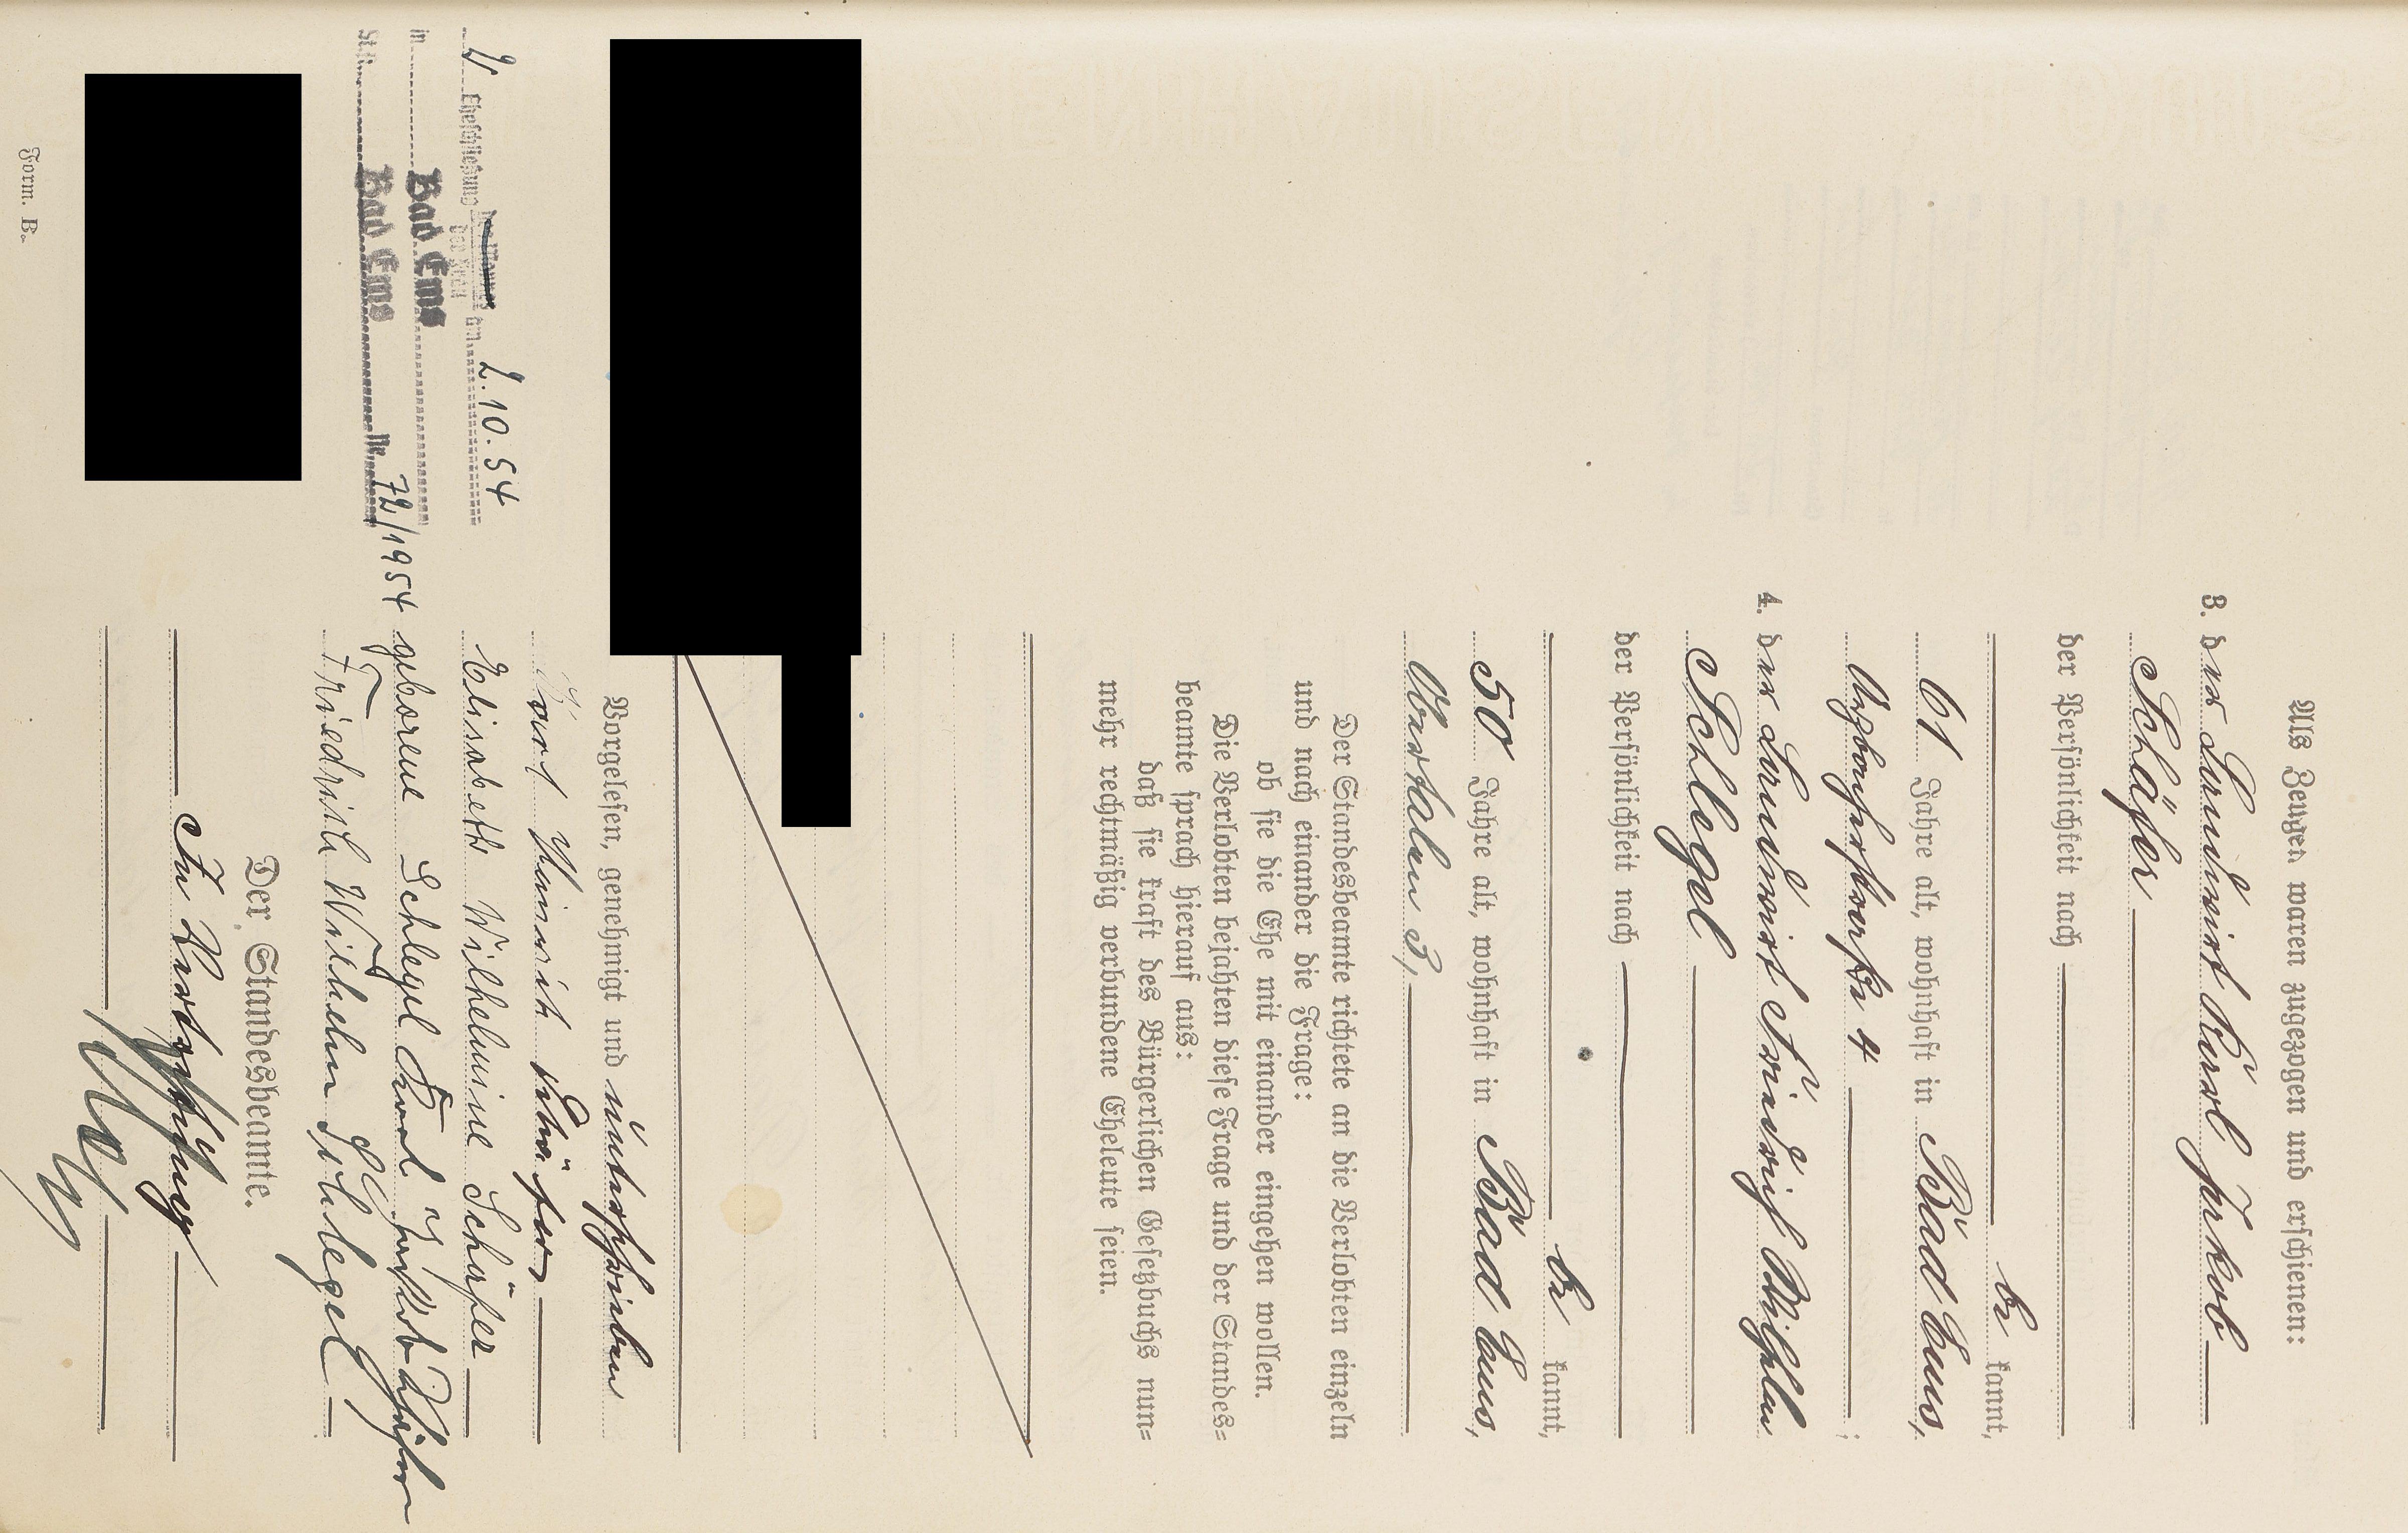 Als Zeugen waren zugezogen und erschienen:
3. der Landwirt Karl Jakob
Schäfer
der Persönlichkeit nach
be kannt,
61 Jahre alt, wohnhaft in Bad Ems,
4
4. der Landwirt Friedrich Wilhelm
Schlegel
der Persönlichkeit nach
be kannt,
50 Jahre alt, wohnhaft in Bad Ems,
3,
Der Standesbeamte richtete an die Verlobten einzeln
und nach einander die Frage:
ob sie die Ehe mit einander eingehen wollen.
Die Verlobten bejahten diese Frage und der Standes=
beamte sprach hierauf aus:
daß sie kraft des Bürgerlichen Gesetzbuchs nun=
mehr rechtmäßig verbundene Eheleute seien.
Vorgelesen, genehmigt und unterschrieben
Karl Heinrich Schäfer
Elisabeth Wilhelmine Schäfer
geborene Schlegel Karl Jakob Schäfer
Friedrich Wilhelm Schlegel
Der Standesbeamte.
In Vertretung
Eheschließung des Sohnes
der am 2.10.54
in Bad Ems
St.A. Bad Ems Nr. 72/1954
Form. B.